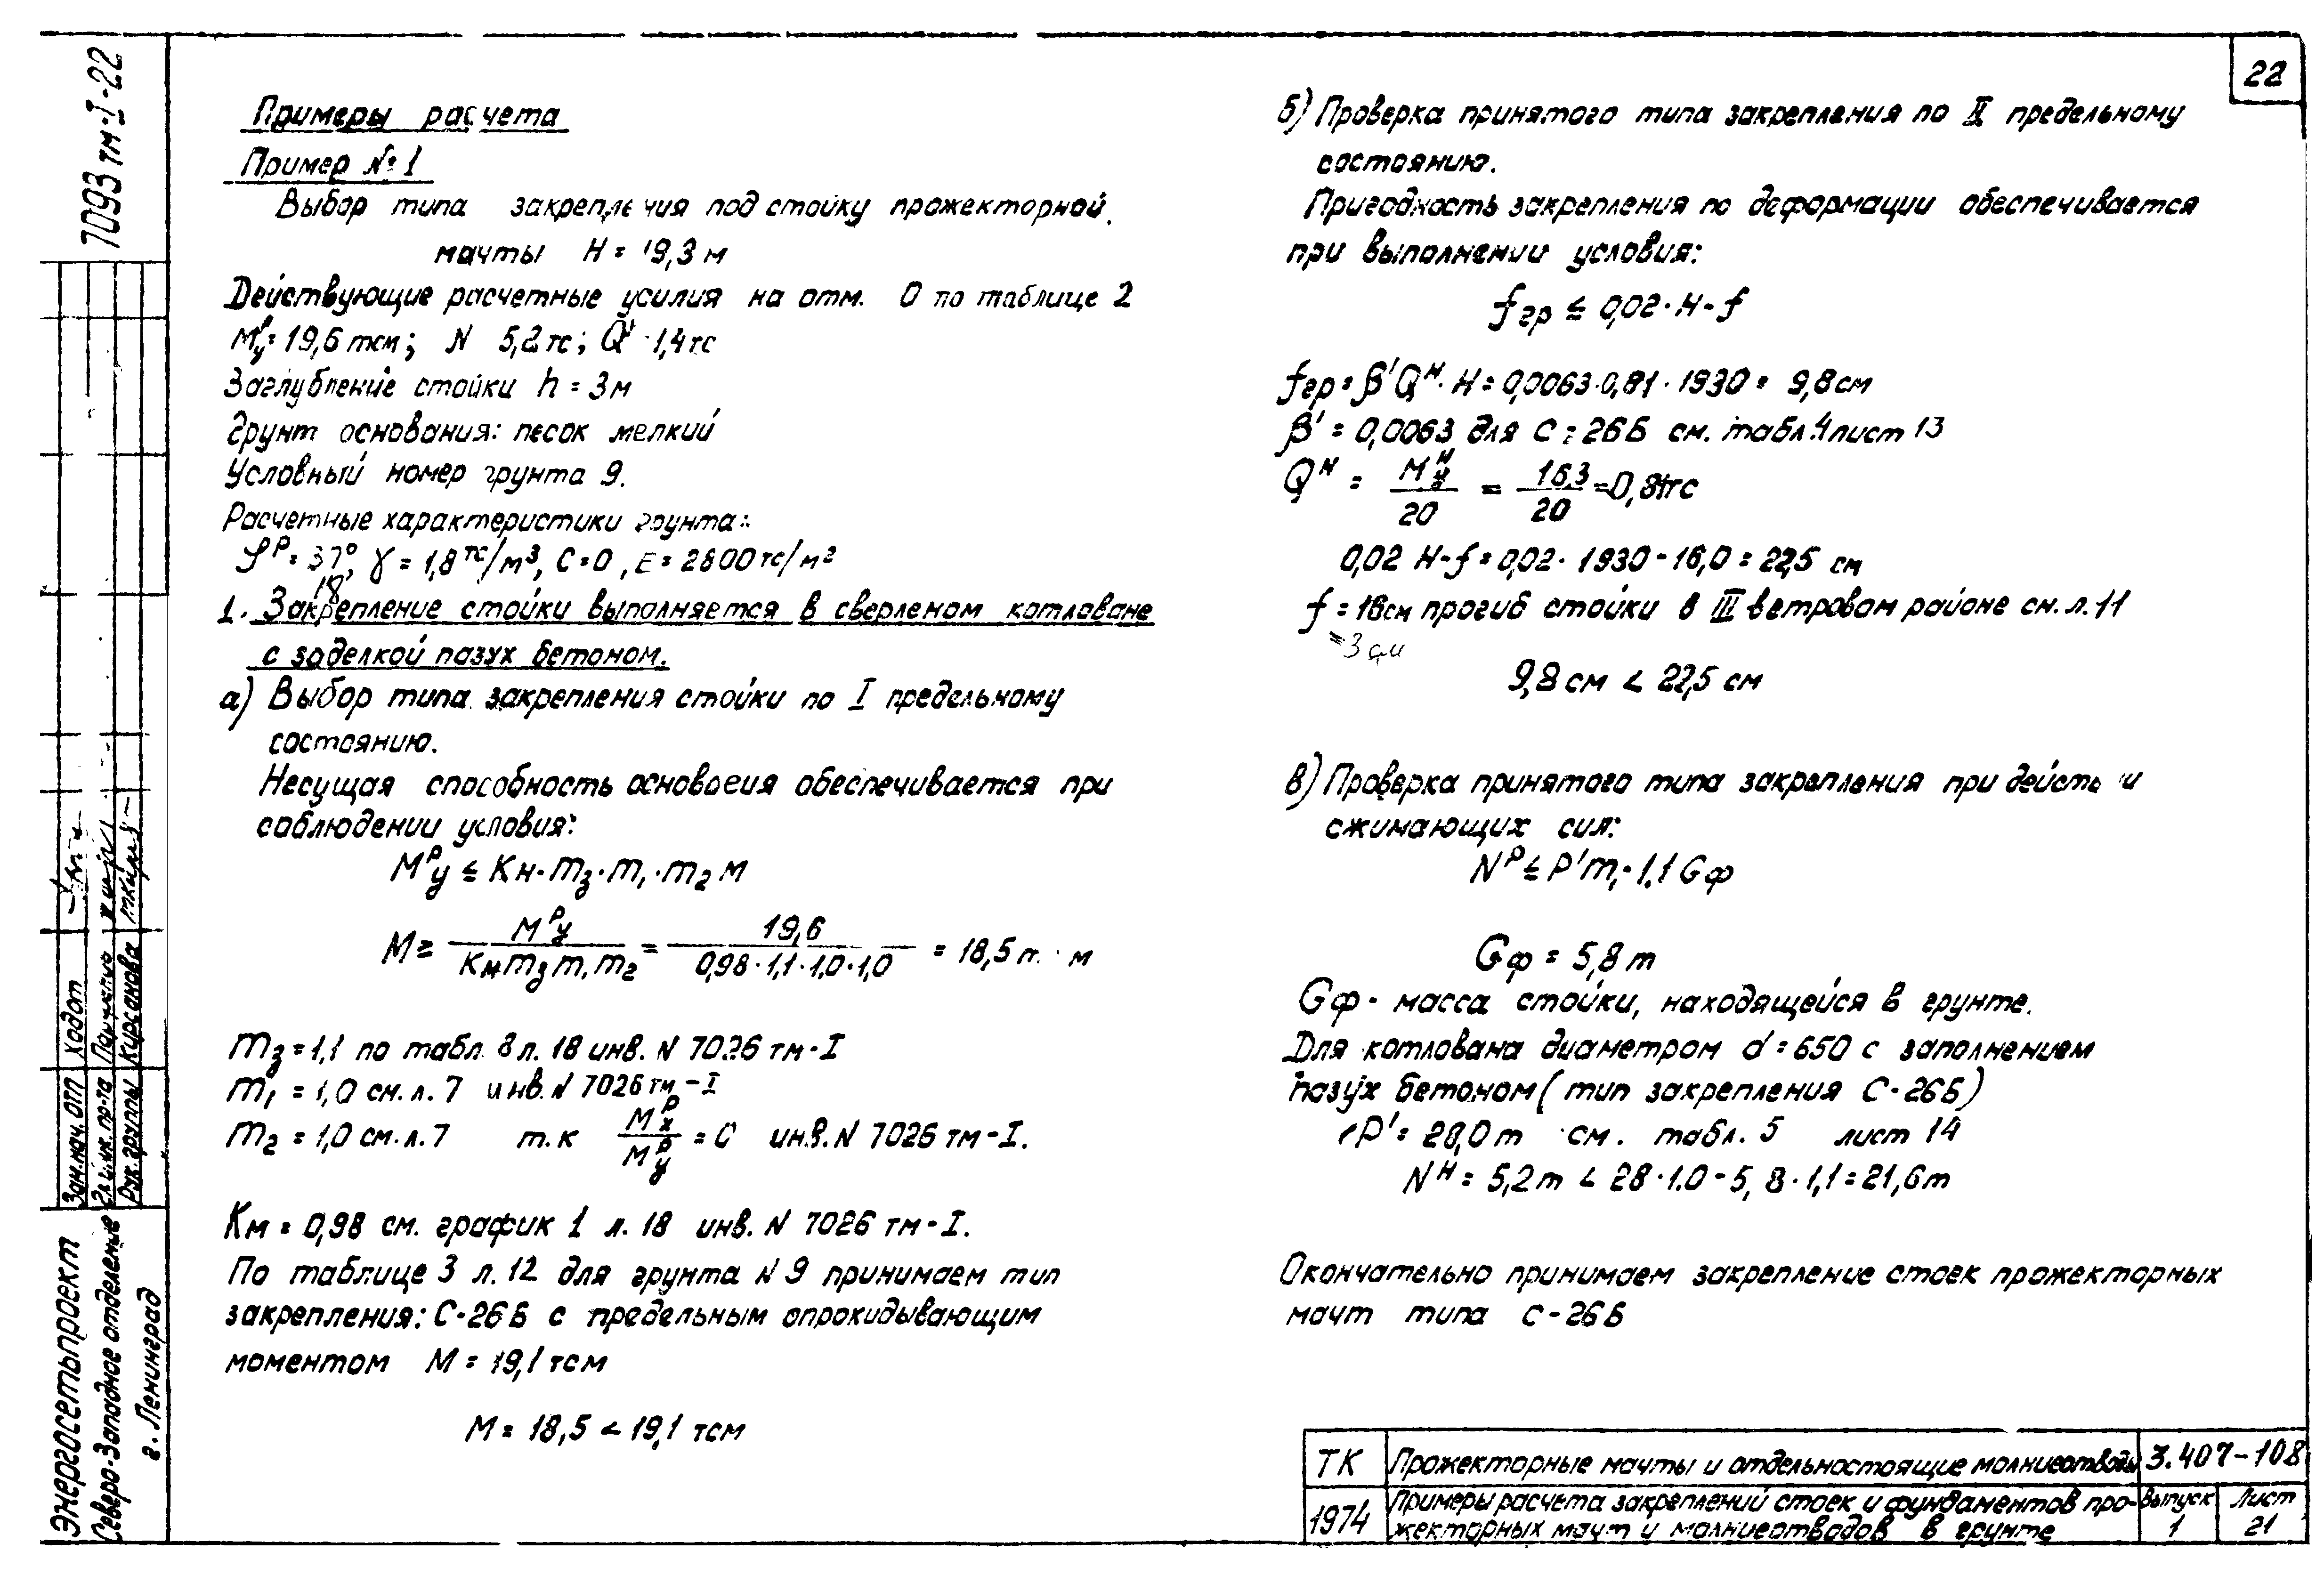 22
7093 тм-I-22
Примеры расчета
Пример №1
Выбор типа закрепления под стойку прожекторной
мачты H = 19,3 м
Действующие расчетные усилия на отм. 0 по таблице 2
Mᵖy = 19,6 тсм; N 5,2 тс; Q 1,4 тс
Заглубление стойки h = 3 м
Грунт основания: песок мелкий
Условный номер грунта 9.
Расчетные характеристики грунта:
φᵖ = 37°, γ = 1,8 тс/м³, C = 0, E = 2800 тс/м²
18
1. Закрепление стойки выполняется в сверленом котловане
с заделкой пазух бетоном.
а) Выбор типа закрепления стойки по I предельному
состоянию.
Несущая способность основания обеспечивается при
соблюдении условия:
Mᵖy ≤ Kн·m₃·m₁·m₂ M
M ≥ Mᵖy / Kм m₃ m₁ m₂ = 19,6 / 0,98·1,1·1,0·1,0 = 18,5 т·м
m₃ = 1,1 по табл. 8 л. 18 инв. N 7026 тм-I
m₁ = 1,0 см. л. 7 инв. N 7026 тм-I
m₂ = 1,0 см. л. 7 т.к Mᵖx / Mᵖy = 0 инв. N 7026 тм-I.
Kм = 0,98 см. график 1 л. 18 инв. N 7026 тм-I.
По таблице 3 л. 12 для грунта N 9 принимаем тип
закрепления: С-26Б с предельным опрокидывающим
моментом M = 19,1 тсм
M = 18,5 < 19,1 тсм
б) Проверка принятого типа закрепления по II предельному
состоянию.
Пригодность закрепления по деформации обеспечивается
при выполнении условия:
fгр ≤ 0,02·H-f
fгр = β'Qᴴ·H = 0,0063·0,81·1930 = 9,8 см
β' = 0,0063 для С-26Б см. табл. 4 лист 13
Qᴴ = Mᴴy / 20 = 16,3 / 20 = 0,81тс
0,02 H-f = 0,02·1930-16,0 = 22,5 см
f = 16 см прогиб стойки в III ветровом районе см. л. 11
=3 см
9,8 см < 22,5 см
в) Проверка принятого типа закрепления при действии
сжимающих сил:
Nᵖ ≤ P'm₁·1,1 Gф
Gф = 5,8 т
Gф - масса стойки, находящейся в грунте.
Для котлована диаметром d = 650 с заполнением
пазух бетоном (тип закрепления С-26Б)
P' = 28,0 т см. табл. 5 лист 14
Nᴴ = 5,2 т < 28·1.0-5,8·1,1 = 21,6 т
Окончательно принимаем закрепление стоек прожекторных
мачт типа С-26Б
Зам.нач. отп Ходот
Гл. инж. пр-та
Рук. группы Курсанова
Энергосетьпроект
Северо-Западное отделение
г. Ленинград
ТК Прожекторные мачты и отдельностоящие молниеотводы 3.407-108
1974 Примеры расчета закреплений стоек и фундаментов про-
жекторных мачт и молниеотводов в грунте
Выпуск 1 Лист 21